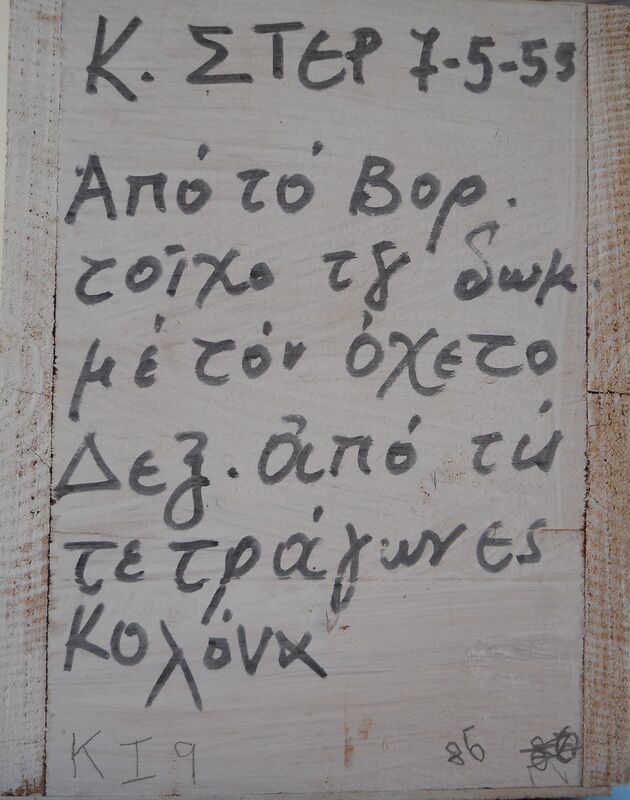 Κ. ΣΤΕΡ 7-5-55
Ἀπό τό Βορ.
τοῖχο τȣ δωμ.
μέ τόν ὀχετο
Δεξ. ἀπό τίς
τετράγωνες
κολόνα
ΚΙ9 86